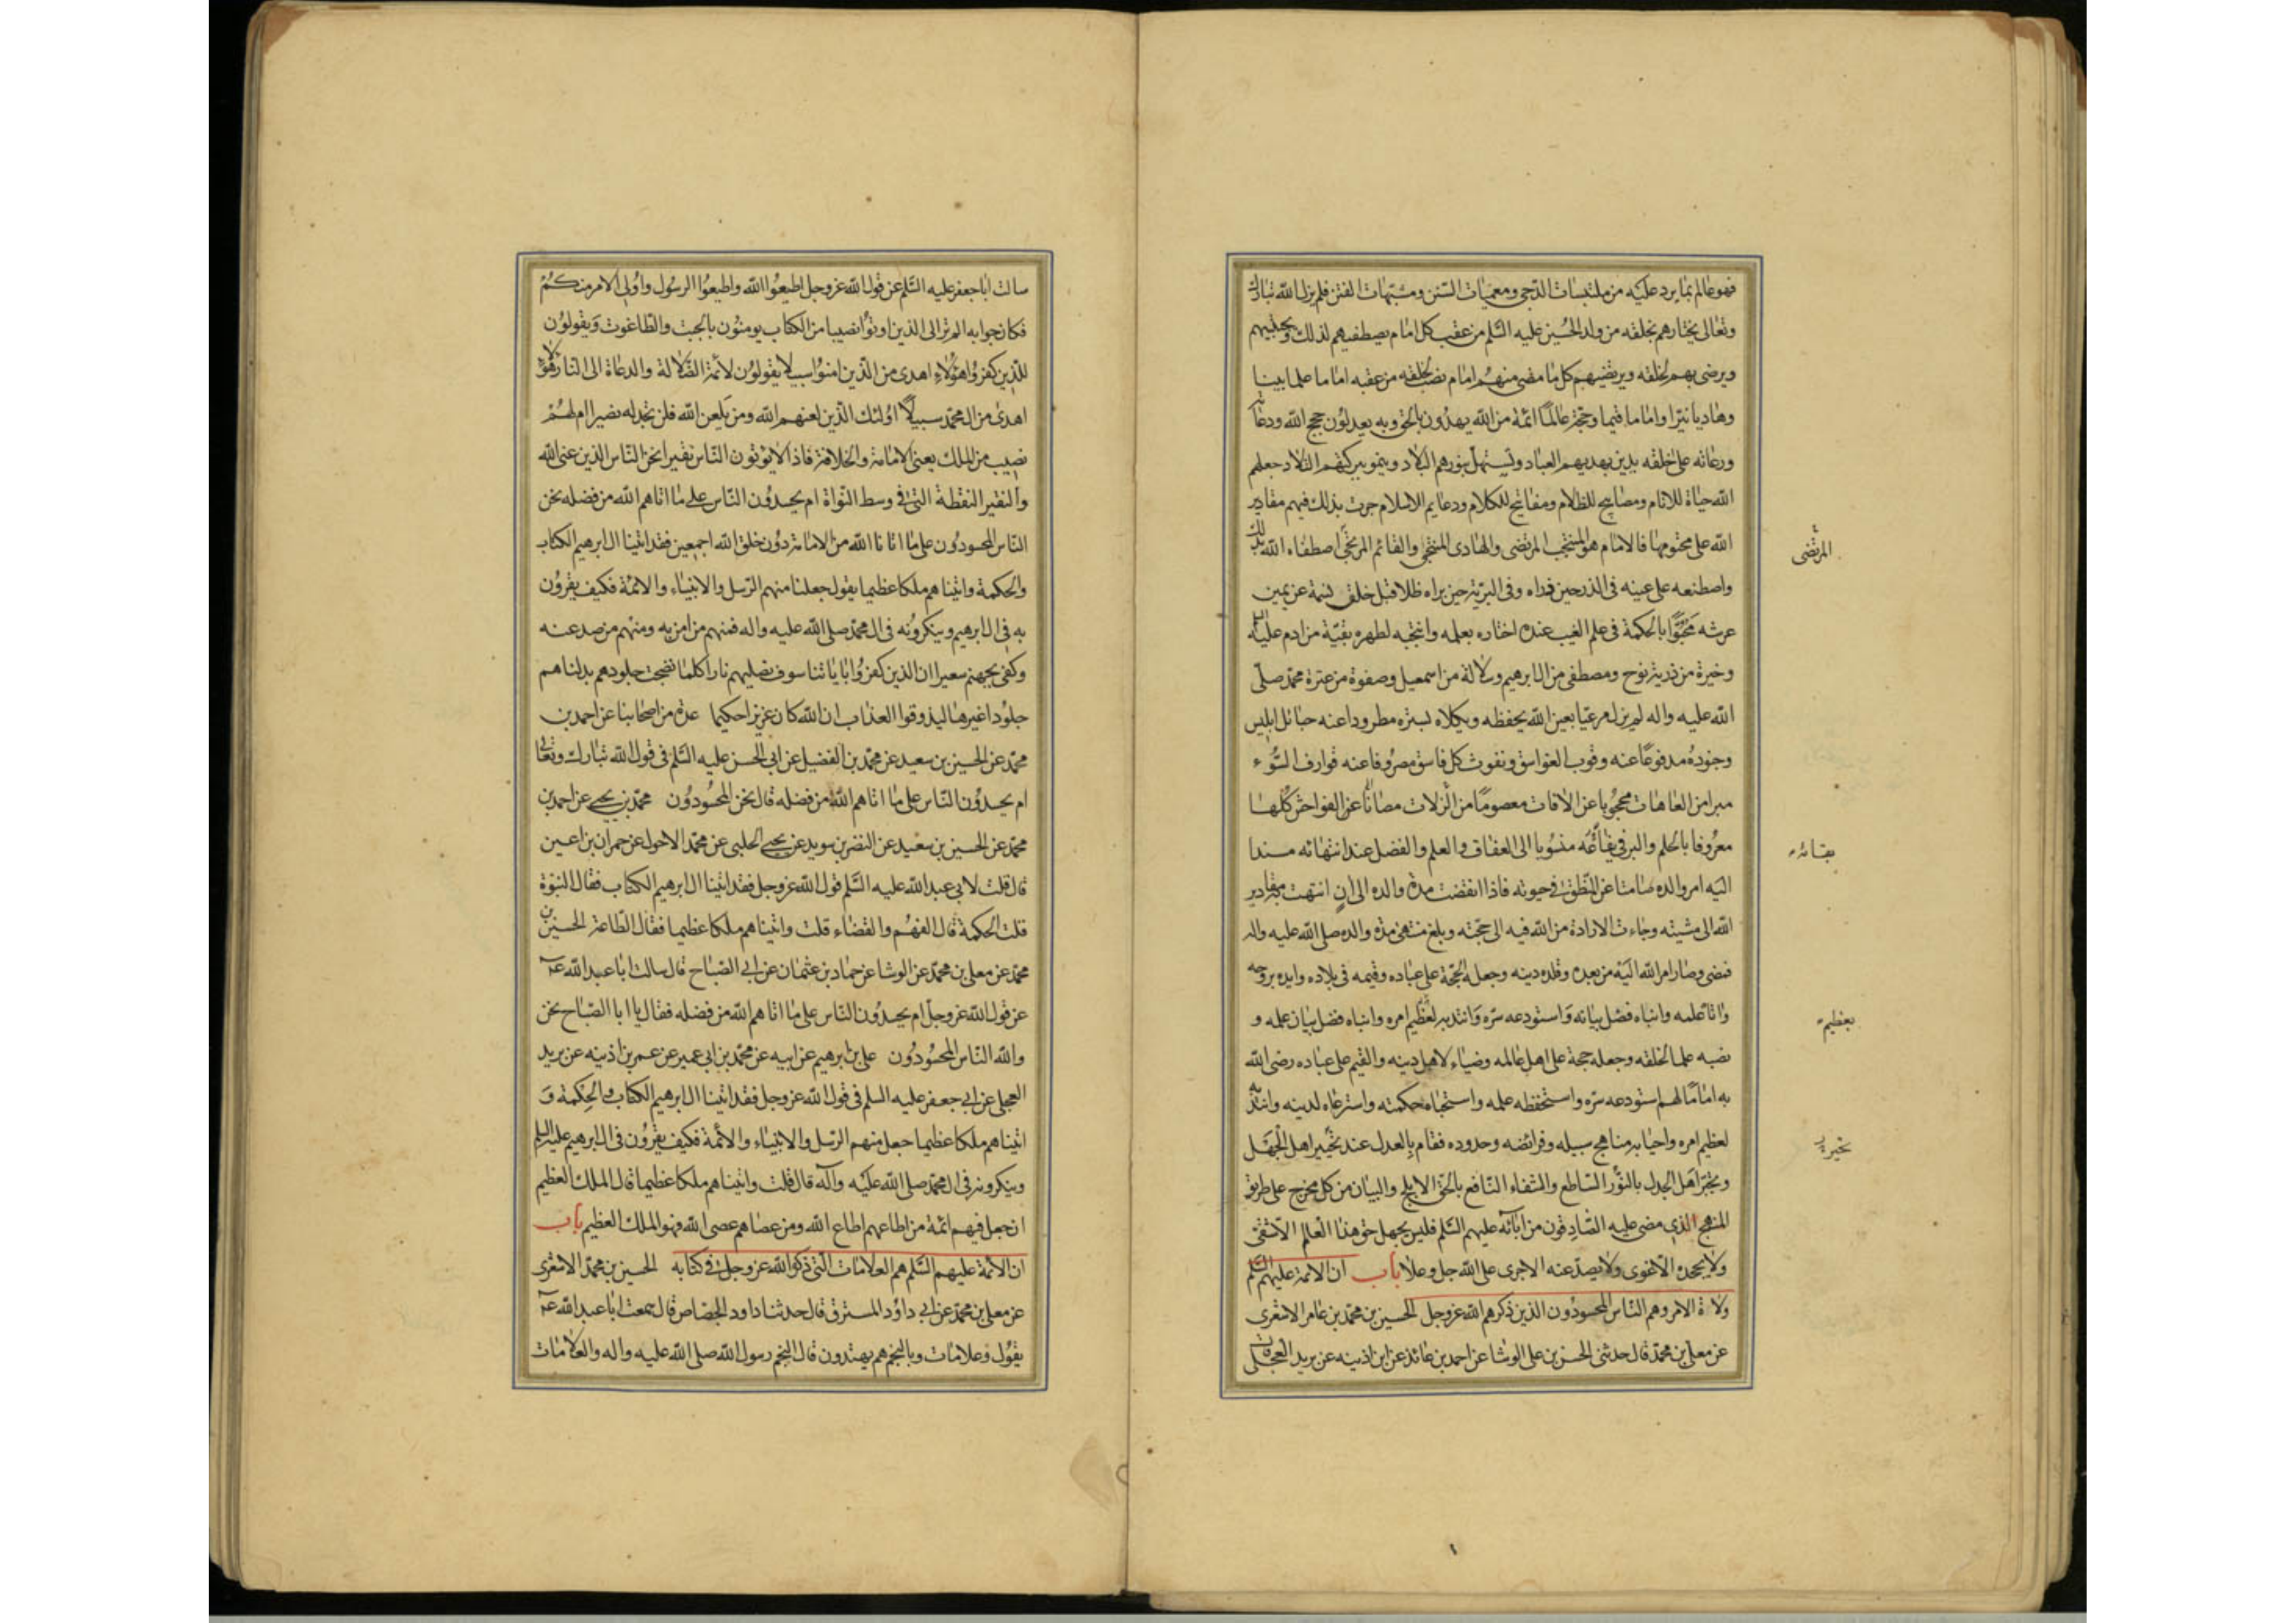 فهو عالم بما يرد عليه من ملتبسات الدجى ومعميات السنن ومشبهات الفتن فلم يزل الله تبارك
وتعالى يختارهم لخلقه من ولد الحسين عليه السلم من عقب كل امام يصطفيهم لذلك ويجتبيهم
ويرضى بهم لخلقه ويرتضيهم كل ما مضى منهم امام نصب لخلقه من عقبه اماما علما بينا
وهاديا نيرا واماما قيما وحجة عالما ائمة من الله يهدون بالحق وبه يعدلون حجج الله ودعاته
ورعاته على خلقه يدين بهديهم العباد وتستهل بنورهم البلاد وينمو ببركتهم التلاد جعلهم
الله حياة للانام ومصابيح للظلام ومفاتيح للكلام ودعايم الاسلام جرت بذلك فيهم مقادير
الله على محتومها فالامام هو المنتجب المرتضى والهادى المنتجى والقائم المرتجى اصطفاه الله بذلك
المرتضى
واصطنعه على عينه فى الذر حين ذراه وفى البرية حين براه ظلا قبل خلق نسمة عن يمين
عرشه محبوا بالحكمة فى علم الغيب عنده اختاره بعلمه وانتجبه لطهره بقية من ادم عليه السلم
وخيرة من ذرية نوح ومصطفى من ال ابرهيم وسلالة من اسمعيل وصفوة من عترة محمد صلى
الله عليه واله لم يزل مرعيا بعين الله يحفظه ويكلاه بستره مطرودا عنه حبائل ابليس
وجنوده مدفوعا عنه وقوب الغواسق ونفوث كل فاسق مصروفا عنه قوارف السوء
مبرا من العاهات محجوبا عن الافات معصوما من الزلات مصانا عن الفواحش كلها
معروفا بالحلم والبر فى يفاعه منسوبا الى العفاف والعلم والفضل عند انتهائه مسندا
بقائه
اليه امر والده صامتا عن المنطق فى حيوته فاذا انقضت مدة والده الى ان انتهت به مقادير
الله الى مشيته وجاءت الارادة من الله فيه الى حجته وبلغ منتهى مدة والده صلى الله عليه واله
فمضى وصار امر الله اليه من بعده وقلده دينه وجعله الحجة على عباده وقيمه فى بلاده وايده بروحه
واتاه علمه وانباه فصل بيانه واستودعه سره وانتدبه لعظيم امره وانباه فضل بيان علمه و
بعظيم
نصبه علما لخلقه وجعله حجة على اهل عالمه وضياء لاهل دينه والقيم على عباده رضى الله
به اماما لهم استودعه سره واستحفظه علمه واستخباه حكمته واسترعاه لدينه وانتدبه
لعظيم امره واحيا به مناهج سبيله وفرائضه وحدوده فقام بالعدل عند تحيير اهل الجهل
تحيير
وتحير اهل الجدل بالنور الساطع والشفاء النافع بالحق الابلج والبيان من كل مخرج على طريق
المنهج الذى مضى عليه الصادقون من ابائه عليهم السلم فليس يجهل حق هذا العالم الا شقى
ولا يجحده الا غوى ولا يصد عنه الا جرى على الله جل وعلا باب ان الائمة عليهم السلم
ولاة الامر وهم الناس المحسودون الذين ذكرهم الله عز وجل الحسين بن محمد بن عامر الاشعرى
عن معلى بن محمد قال حدثنى الحسن بن على الوشا عن احمد بن عائذ عن ابن اذينه عن بريد العجلى قال
سالت ابا جعفر عليه السلم عن قول الله عز وجل اطيعوا الله واطيعوا الرسول واولى الامر منكم
فكان جوابه الم تر الى الذين اوتوا نصيبا من الكتاب يومنون بالجبت والطاغوت ويقولون
للذين كفروا هؤلاء اهدى من الذين امنوا سبيلا يقولون لائمة الضلالة والدعاة الى النار هؤلاء
اهدى من ال محمد سبيلا اولئك الذين لعنهم الله ومن يلعن الله فلن تجد له نصيرا ام لهم
نصيب من الملك يعنى الامامة والخلافة فاذا لا يؤتون الناس نقيرا نحن الناس الذين عنى الله
والنقير النقطة التى فى وسط النواة ام يحسدون الناس على ما اتاهم الله من فضله نحن
الناس المحسودون على ما اتانا الله من الامامة دون خلق الله اجمعين فقد اتينا ال ابرهيم الكتاب
والحكمة واتيناهم ملكا عظيما يقول جعلنا منهم الرسل والانبياء والائمة فكيف يقرون
به فى ال ابرهيم وينكرونه فى ال محمد صلى الله عليه واله فمنهم من امن به ومنهم من صد عنه
وكفى بجهنم سعيرا ان الذين كفروا باياتنا سوف نصليهم نارا كلما نضجت جلودهم بدلناهم
جلودا غيرها ليذوقوا العذاب ان الله كان عزيزا حكيما عدة من اصحابنا عن احمد بن
محمد عن الحسين بن سعيد عن محمد بن الفضيل عن ابى الحسن عليه السلم فى قول الله تبارك وتعالى
ام يحسدون الناس على ما اتاهم الله من فضله قال نحن المحسودون محمد بن يحيى عن احمد بن
محمد عن الحسين بن سعيد عن النضر بن سويد عن يحيى الحلبى عن محمد الاحول عن حمران بن اعين
قال قلت لابى عبد الله عليه السلم قول الله عز وجل فقد اتينا ال ابرهيم الكتاب فقال النبوة
قلت الحكمة قال الفهم والقضاء قلت واتيناهم ملكا عظيما فقال الطاعة الحسين بن
محمد عن معلى بن محمد عن الوشا عن حماد بن عثمان عن ابى الصباح قال سالت ابا عبد الله عه
عن قول الله عز وجل ام يحسدون الناس على ما اتاهم الله من فضله فقال يا ابا الصباح نحن
والله الناس المحسودون على بن ابرهيم عن ابيه عن محمد بن ابى عمير عن عمر بن اذينه عن بريد
العجلى عن ابى جعفر عليه السلم فى قول الله عز وجل فقد اتينا ال ابرهيم الكتاب والحكمة و
اتيناهم ملكا عظيما جعل منهم الرسل والانبياء والائمة فكيف يقرون فى ال ابرهيم عليه السلم
وينكرونه فى ال محمد صلى الله عليه وآله قال قلت واتيناهم ملكا عظيما قال الملك العظيم
ان جعل فيهم ائمة من اطاعهم اطاع الله ومن عصاهم عصى الله فهو الملك العظيم باب
ان الائمة عليهم السلم هم العلامات التى ذكر الله عز وجل فى كتابه الحسين بن محمد الاشعرى
عن معلى بن محمد عن ابى داؤد المسترق قال حدثنا داود الجصاص قال سمعت ابا عبد الله عه
يقول وعلامات وبالنجم هم يهتدون قال النجم رسول الله صلى الله عليه واله والعلامات